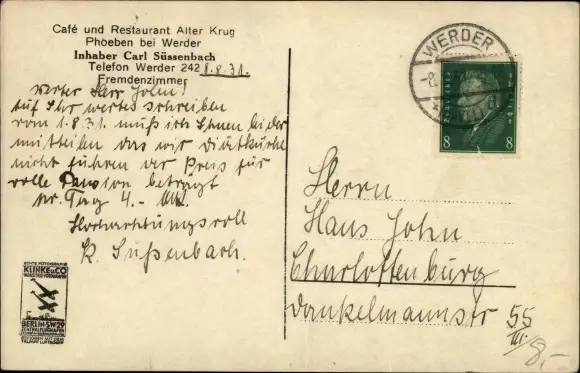 Café und Restaurant Alter Krug
Phoeben bei Werder
Inhaber Carl Süssenbach
Telefon Werder 242
Fremdenzimmer
8.8.31.
Werter Herr John!
Auf Ihr wertes Schreiben
vom 1.8.31. muß ich Ihnen leider
mitteilen das wir Diätküche
nicht führen der Preis für
volle Pension beträgt
pr. Tag 4.- Mk.
Hochachtungsvoll
K. Süßenbach.
WERDER
8
8
Herrn
Hans John
Charlottenburg
Dankelmannstr 55
III
8,-
KLINKE & CO
BERLIN-SW29